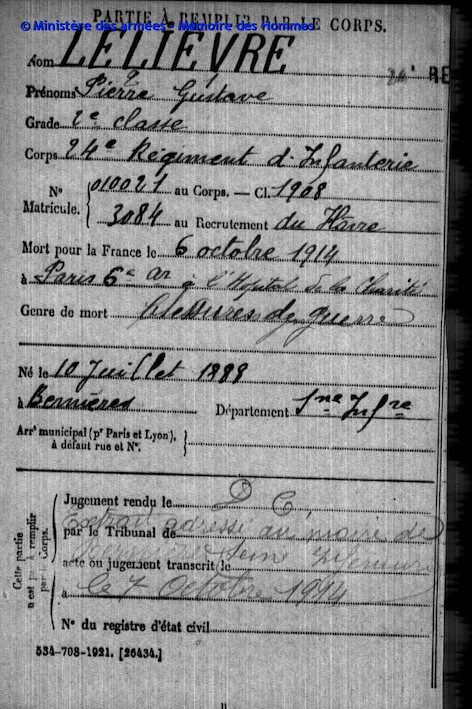 PARTIE À REMPLIR PAR LE CORPS.
© Ministère des armées - Mémoire des Hommes
Nom LELIEVRE
24e RE
Prénoms Pierre Gustave
Grade 2e classe
Corps 24e Régiment d'Infanterie
N° Matricule. { 010021 au Corps. — Cl. 1908
3084 au Recrutement du Havre
Mort pour la France le 6 octobre 1914
à Paris 6e ar à l'Hôpital de la Charité
Genre de mort blessures de guerre
Né le 10 Juillet 1888
à Bernières Département Sne Infre
Arrt municipal (pr Paris et Lyon),
à défaut rue et N°. }
Cette partie n'est pas à remplir par le Corps.
Jugement rendu le D C
par le Tribunal de
Extrait adressé au maire de
acte ou jugement transcrit le
Seine Inférieure
à le 7 Octobre 1914
N° du registre d'état civil
534-708-1921. [26434.]